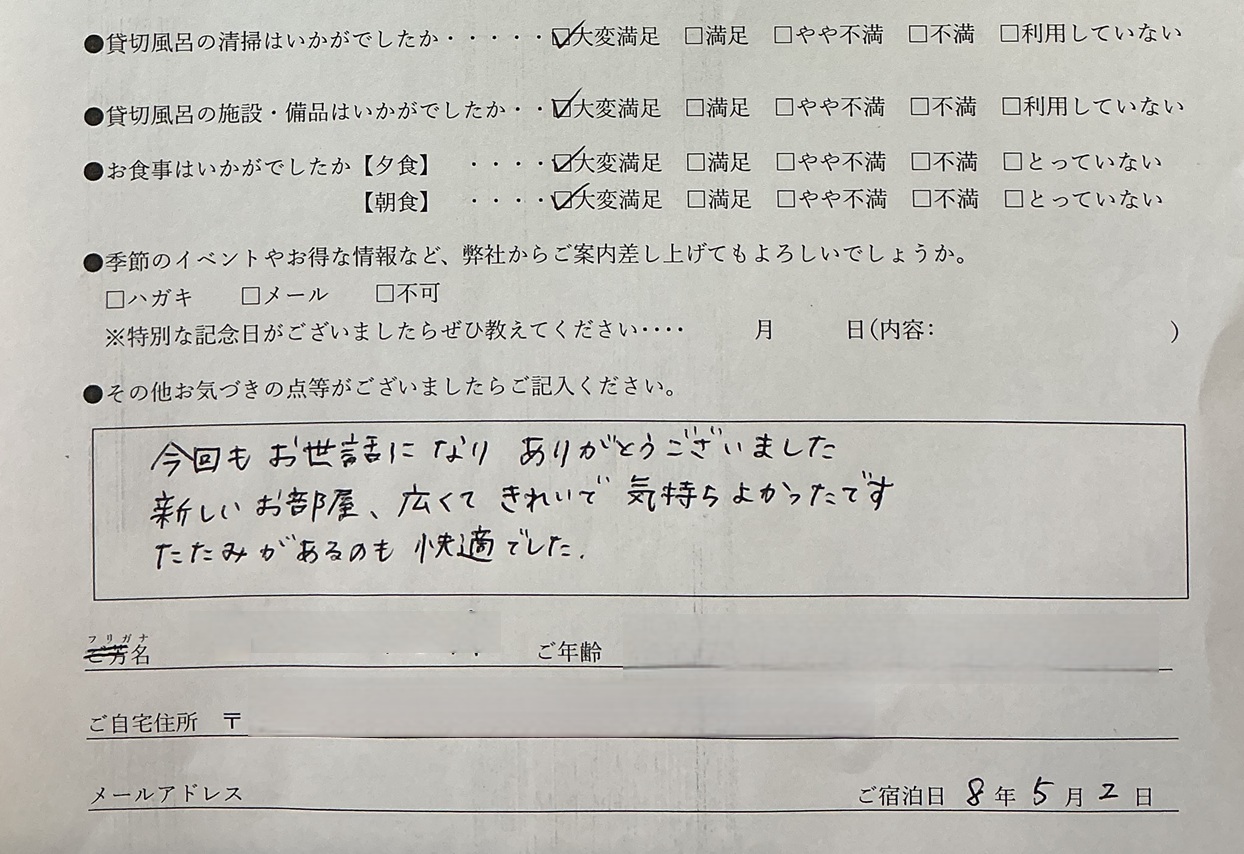 ●貸切風呂の清掃はいかがでしたか・・・・・☑大変満足 □満足 □やや不満 □不満 □利用していない
●貸切風呂の施設・備品はいかがでしたか・・☑大変満足 □満足 □やや不満 □不満 □利用していない
●お食事はいかがでしたか【夕食】 ・・・・☑大変満足 □満足 □やや不満 □不満 □とっていない
【朝食】 ・・・・☑大変満足 □満足 □やや不満 □不満 □とっていない
●季節のイベントやお得な情報など、弊社からご案内差し上げてもよろしいでしょうか。
□ハガキ □メール □不可
※特別な記念日がございましたらぜひ教えてください‥‥ 月 日(内容: )
●その他お気づきの点等がございましたらご記入ください。
今回も お世話に なり ありがとうございました
新しい お部屋、広くて きれいで 気持ちよかったです
たたみがあるのも 快適でした.
フリガナ
ご芳名 ご年齢
ご自宅住所 〒
メールアドレス ご宿泊日 8年5月2日